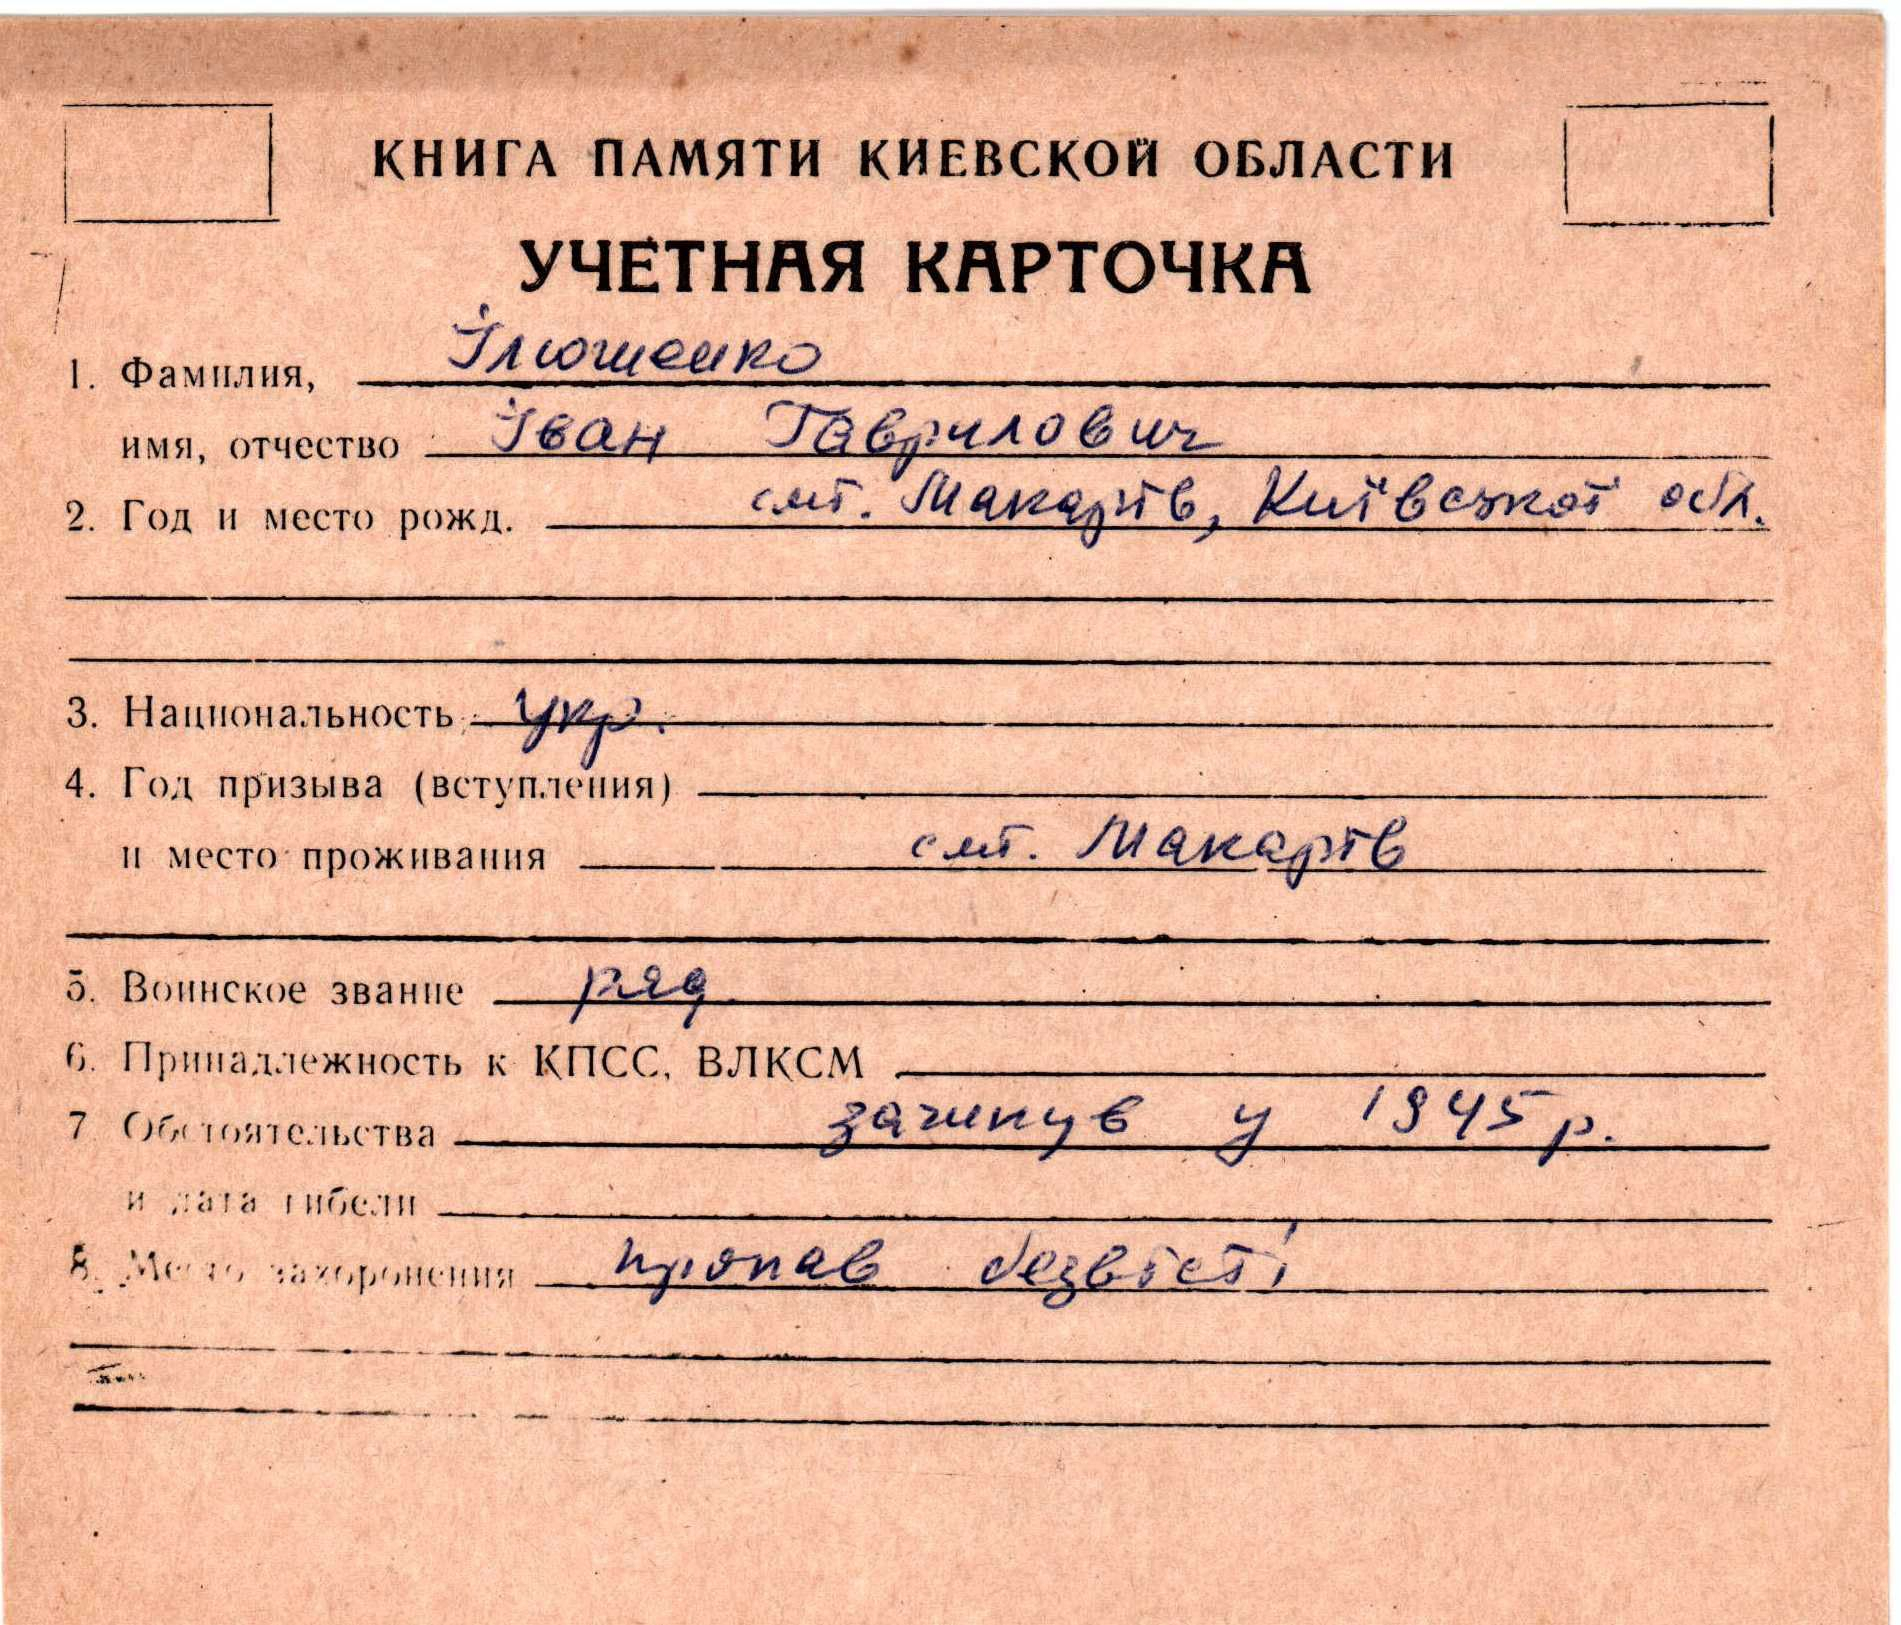 КНИГА ПАМЯТИ КИЕВСКОЙ ОБЛАСТИ
УЧЕТНАЯ КАРТОЧКА
1. Фамилия, Ілюшенко
имя, отчество Іван Гаврилович
2. Год и место рожд. смт. Макарів, Київської обл.
3. Национальность укр.
4. Год призыва (вступления)
и место проживания смт. Макарів
5. Воинское звание ряд
6. Принадлежность к КПСС, ВЛКСМ
7 Обстоятельства загинув у 1945 р.
и дата гибели
8. Место захоронения пропав безвісті